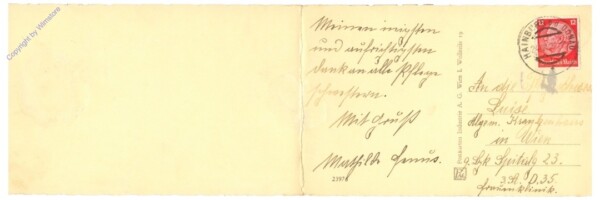 Copyright by Wienstore
Meinen innigsten
und aufrichtigsten
dank an alle Pflege
schwestern.
Mit Gruß
Mathilde
Postkarten Industrie A. G. Wien I. Wollzeile
HAINBURG
12
An die
Luise
Allgem. Krankenhaus
in Wien
9. Bzk Spitalg. 23.
D. 35.
Frauenklinik.